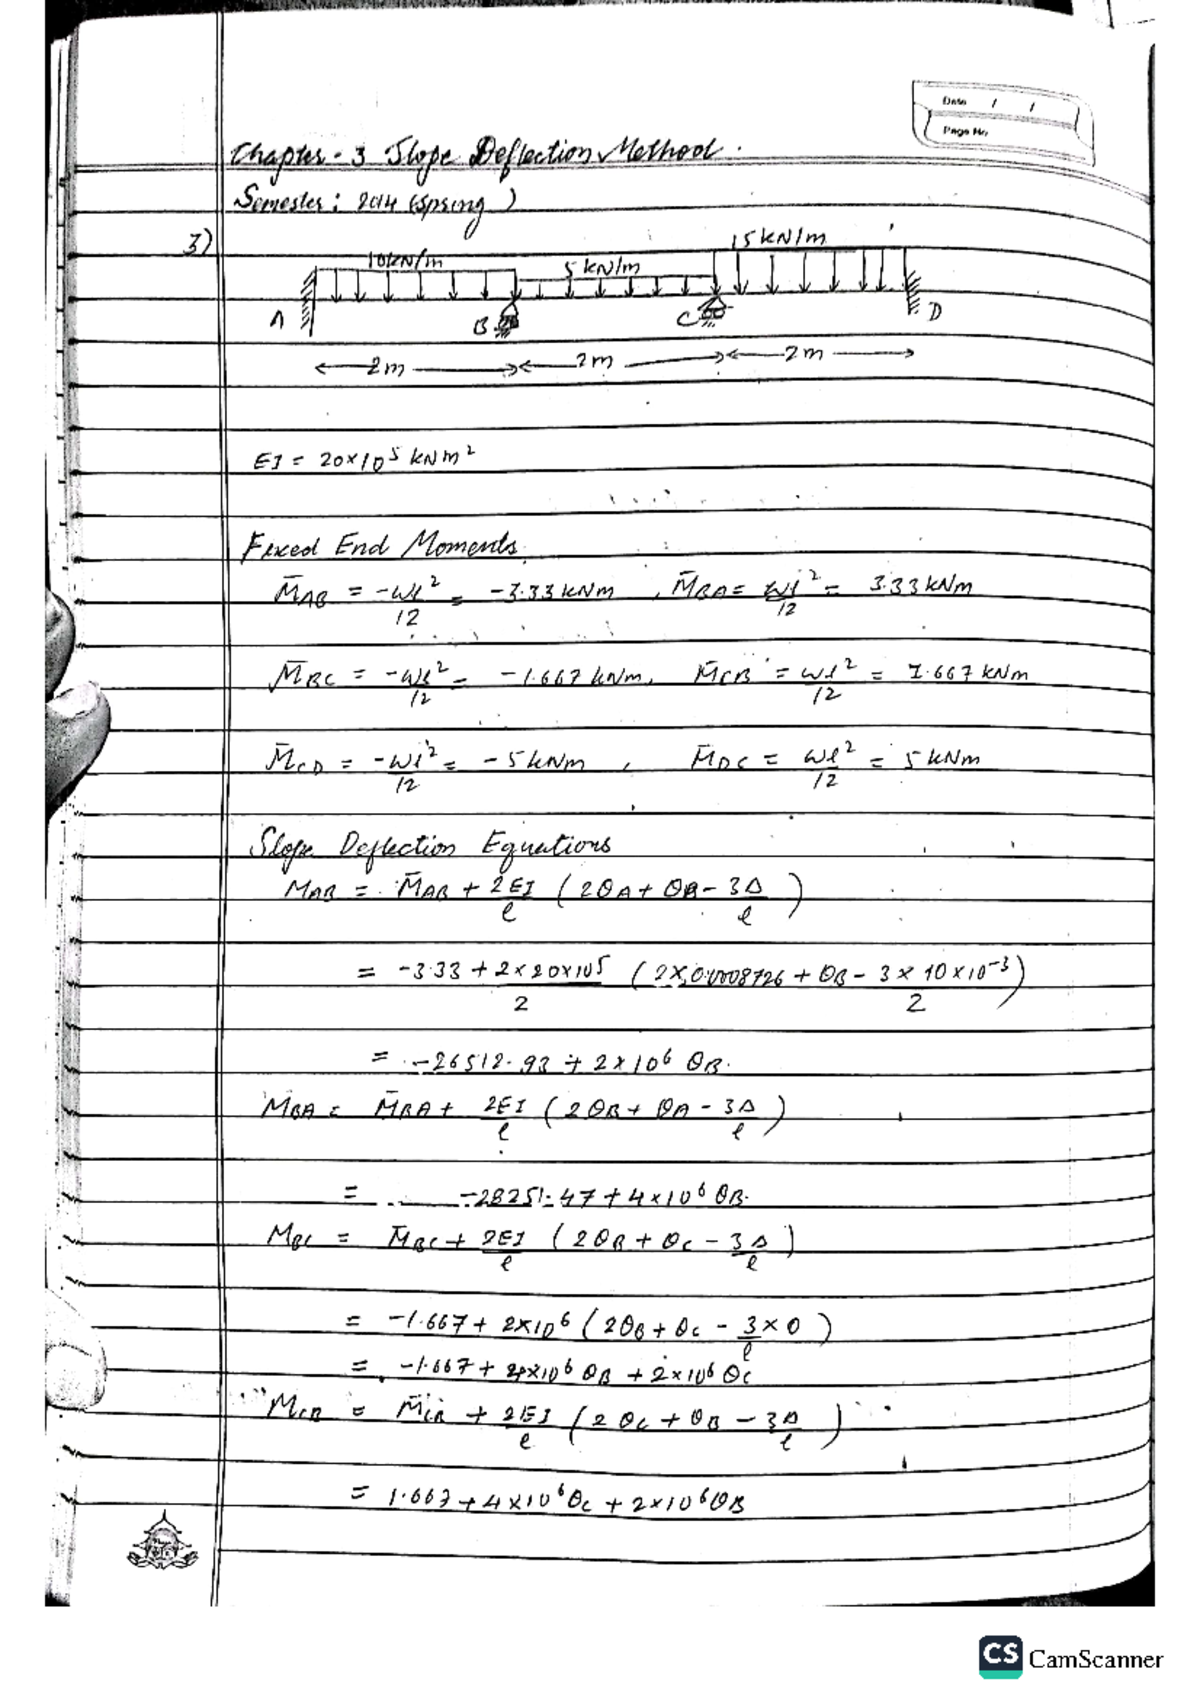 Date / /
Page No.
Chapter - 3 Slope Deflection Method.
Semester: 2014 (spring)
3)
10kN/m 5 kN/m 15 kN/m
A B C D
2m 2m 2m
EI = 20×10⁵ kNm²
Fixed End Moments
M̄AB = -wl²/12 = -3.33 kNm, M̄BA = wl²/12 = 3.33 kNm
M̄BC = -wl²/12 = -1.667 kNm, M̄CB = wl²/12 = 1.667 kNm
M̄CD = -wl²/12 = -5 kNm, M̄DC = wl²/12 = 5 kNm
Slope Deflection Equations
MAB = M̄AB + 2EI/l (2θA + θB - 3Δ/l)
= -3.33 + 2×20×10⁵/2 (2×0.0008726 + θB - 3×10×10⁻³/2)
= -26512.93 + 2×10⁶ θB.
MBA = M̄BA + 2EI/l (2θB + θA - 3Δ/l)
= -28251.47 + 4×10⁶ θB.
MBC = M̄BC + 2EI/l (2θB + θC - 3Δ/l)
= -1.667 + 2×10⁶ (2θB + θC - 3×0/l)
= -1.667 + 4×10⁶ θB + 2×10⁶ θC
MCB = M̄CB + 2EI/l (2θC + θB - 3Δ/l)
= 1.667 + 4×10⁶θC + 2×10⁶θB
CS CamScanner